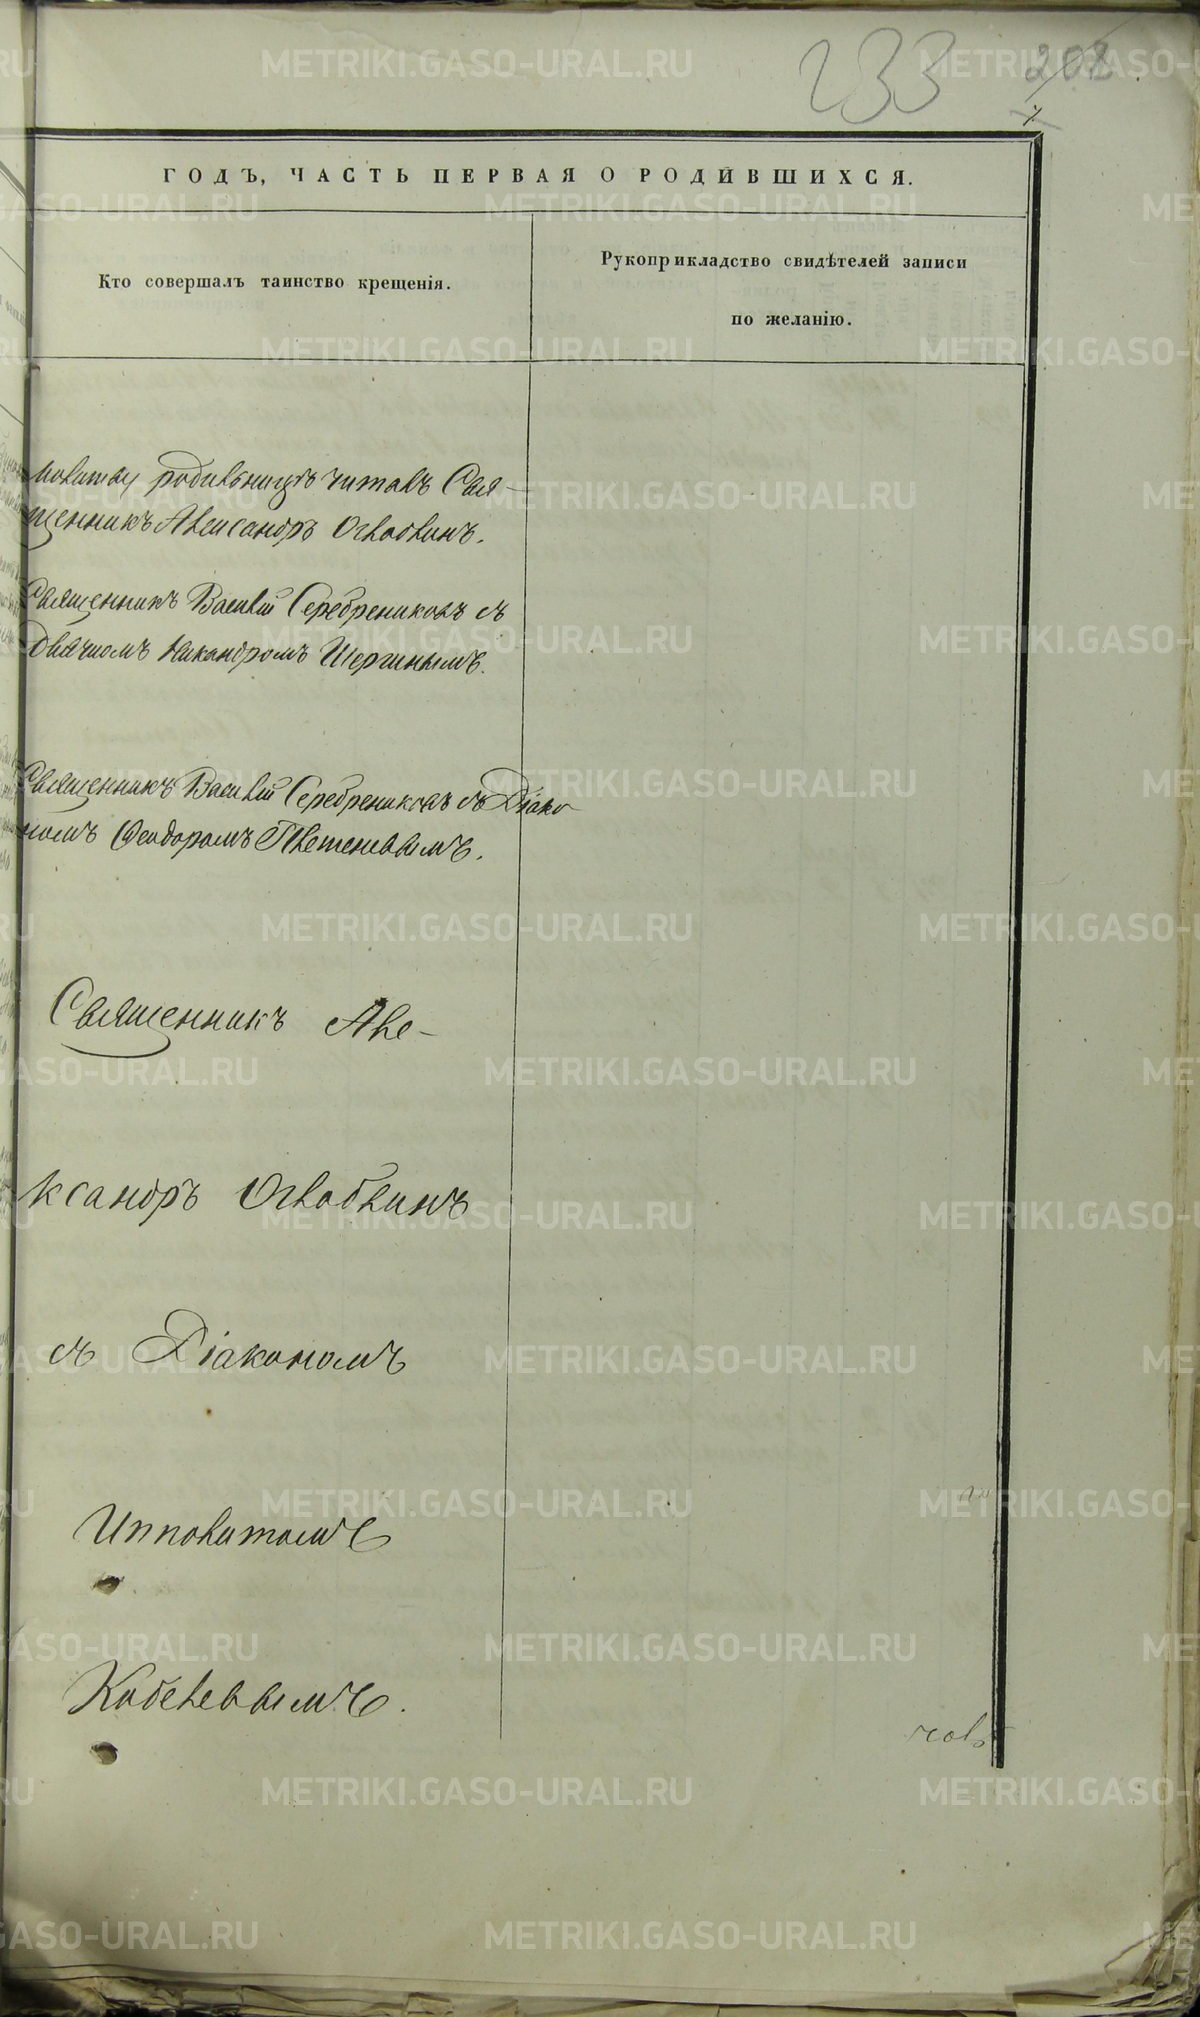 233 208
ГОДЪ, ЧАСТЬ ПЕРВАЯ О РОДИВШИХСЯ.
Кто совершалъ таинство крещенія.
Рукоприкладство свидѣтелей записи
по желанію.
молитву родильницѣ читалъ Свя-
щенникъ Александръ Оглоблинъ.
Священникъ Василій Серебрениковъ съ
Дьячкомъ Никандромъ Шергинымъ.
Священникъ Василій Серебрениковъ съ Діако
номъ Феодоромъ Плетеневымъ.
Священникъ Але-
ксандръ Оглоблинъ
съ Діакономъ
Ипполитомъ
Кобелевымъ.
METRIKI.GASO-URAL.RU